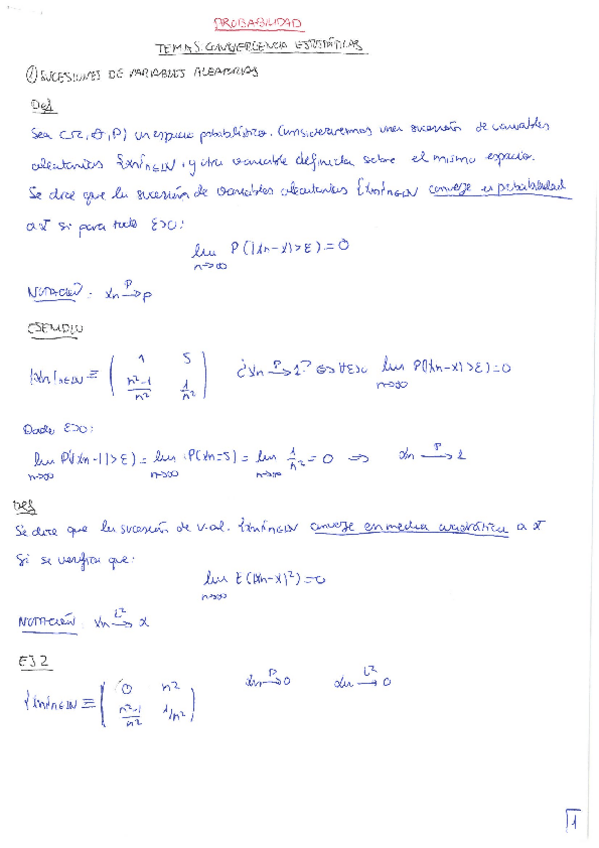 PROBABILIDAD
TEMA 5. CONVERGENCIA ESTOCÁSTICAS
① SUCESIONES DE VARIABLES ALEATORIAS
Def
Sea (Ω, 𝒜, P) un espacio probabilístico. Consideraremos una sucesión de variables
aleatorias {Xn}n∈ℕ, y otra variable definida sobre el mismo espacio.
Se dice que la sucesión de variables aleatorias {Xn}n∈ℕ converge en probabilidad
a X si para todo ε>0:
lim P(|Xn-X|>ε)=0
n→∞
NOTACIÓN: Xn →P p
EJEMPLO
{Xn}n∈ℕ ≡ ( 1 5
n²-1/n² 1/n² ) ¿Xn →P 1? ⇔ ∀ε>0 lim n→∞ P(|Xn-X|>ε)=0
Dado ε>0:
lim n→∞ P(|Xn-1|>ε) = lim n→∞ P(Xn=5) = lim n→∞ 1/n² = 0 ⇒ Xn →P 1
Def
Se dice que la sucesión de v.al. {Xn}n∈ℕ converge en media cuadrática a X
si se verifica que:
lim E(|Xn-X|²)=0
n→∞
NOTACIÓN: Xn →L² X
EJ 2
{Xn}n∈ℕ ≡ ( 0 n²
n²-1/n² 1/n² ) Xn →P 0 Xn →L² 0
1